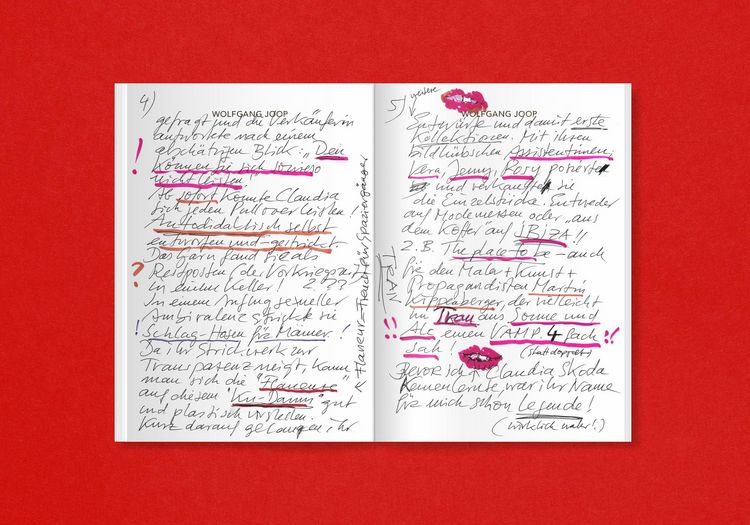 4)
WOLFGANG JOOP
gefragt und die Verkäuferin
antwortete nach einem
abschätzigen Blick: "Den
! können Sie sich sowieso
nicht leisten!"
Ab sofort konnte Claudia
sich jeden Pullover leisten.
Autodidaktisch selbst
entworfen und -gestrickt.
Das Garn fand sie als
? Restposten (der Vorkriegszeit
in einem Keller! ???
In einem Anflug sexueller
Ambivalenz strickte sie
! Schlag-Hosen für Männer!
Da ihr Strickwerk zur
Transparenz neigt, kann
man sich die "Flaneuse"
auf diesem "Ku-Damm" gut
und plastisch vorstellen.
Kurz darauf gelangen ihr
Flaneur = Französisch für Spaziergänger
5)
weitere
WOLFGANG JOOP
Entwürfe und damit erste
Kollektionen. Mit ihren
bildhübschen Assistentinnen:
Vera, Jenny, Rosy posierte
und verkaufte sie
die Einzelstücke. Entweder
auf Modemessen oder "aus
dem Koffer auf IBIZA!!
z.B. The place to be - auch
für den Maler + Kunst +
Propagandisten Martin
Kippenberger, der vielleicht
im Tran aus Sonne und
!! Als einen VAMP 4 fach !!
sah! (statt doppelt)
TRAN
Bevor ich Claudia Skoda
kennenlernte, war ihr Name
für mich schon Legende!
(wirklich wahr!)